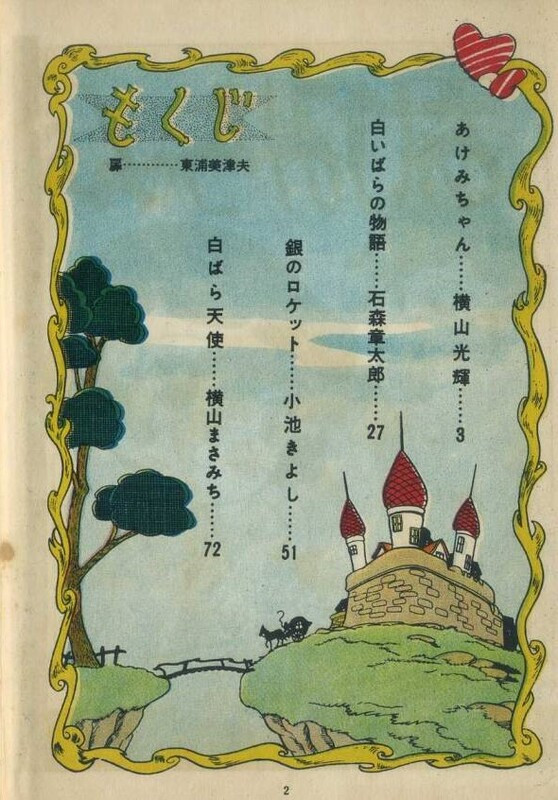 もくじ
扉…………東浦美津夫
あけみちゃん……横山光輝……3
白いばらの物語……石森章太郎……27
銀のロケット……小池きよし……51
白ばら天使……横山まさみち……72
2